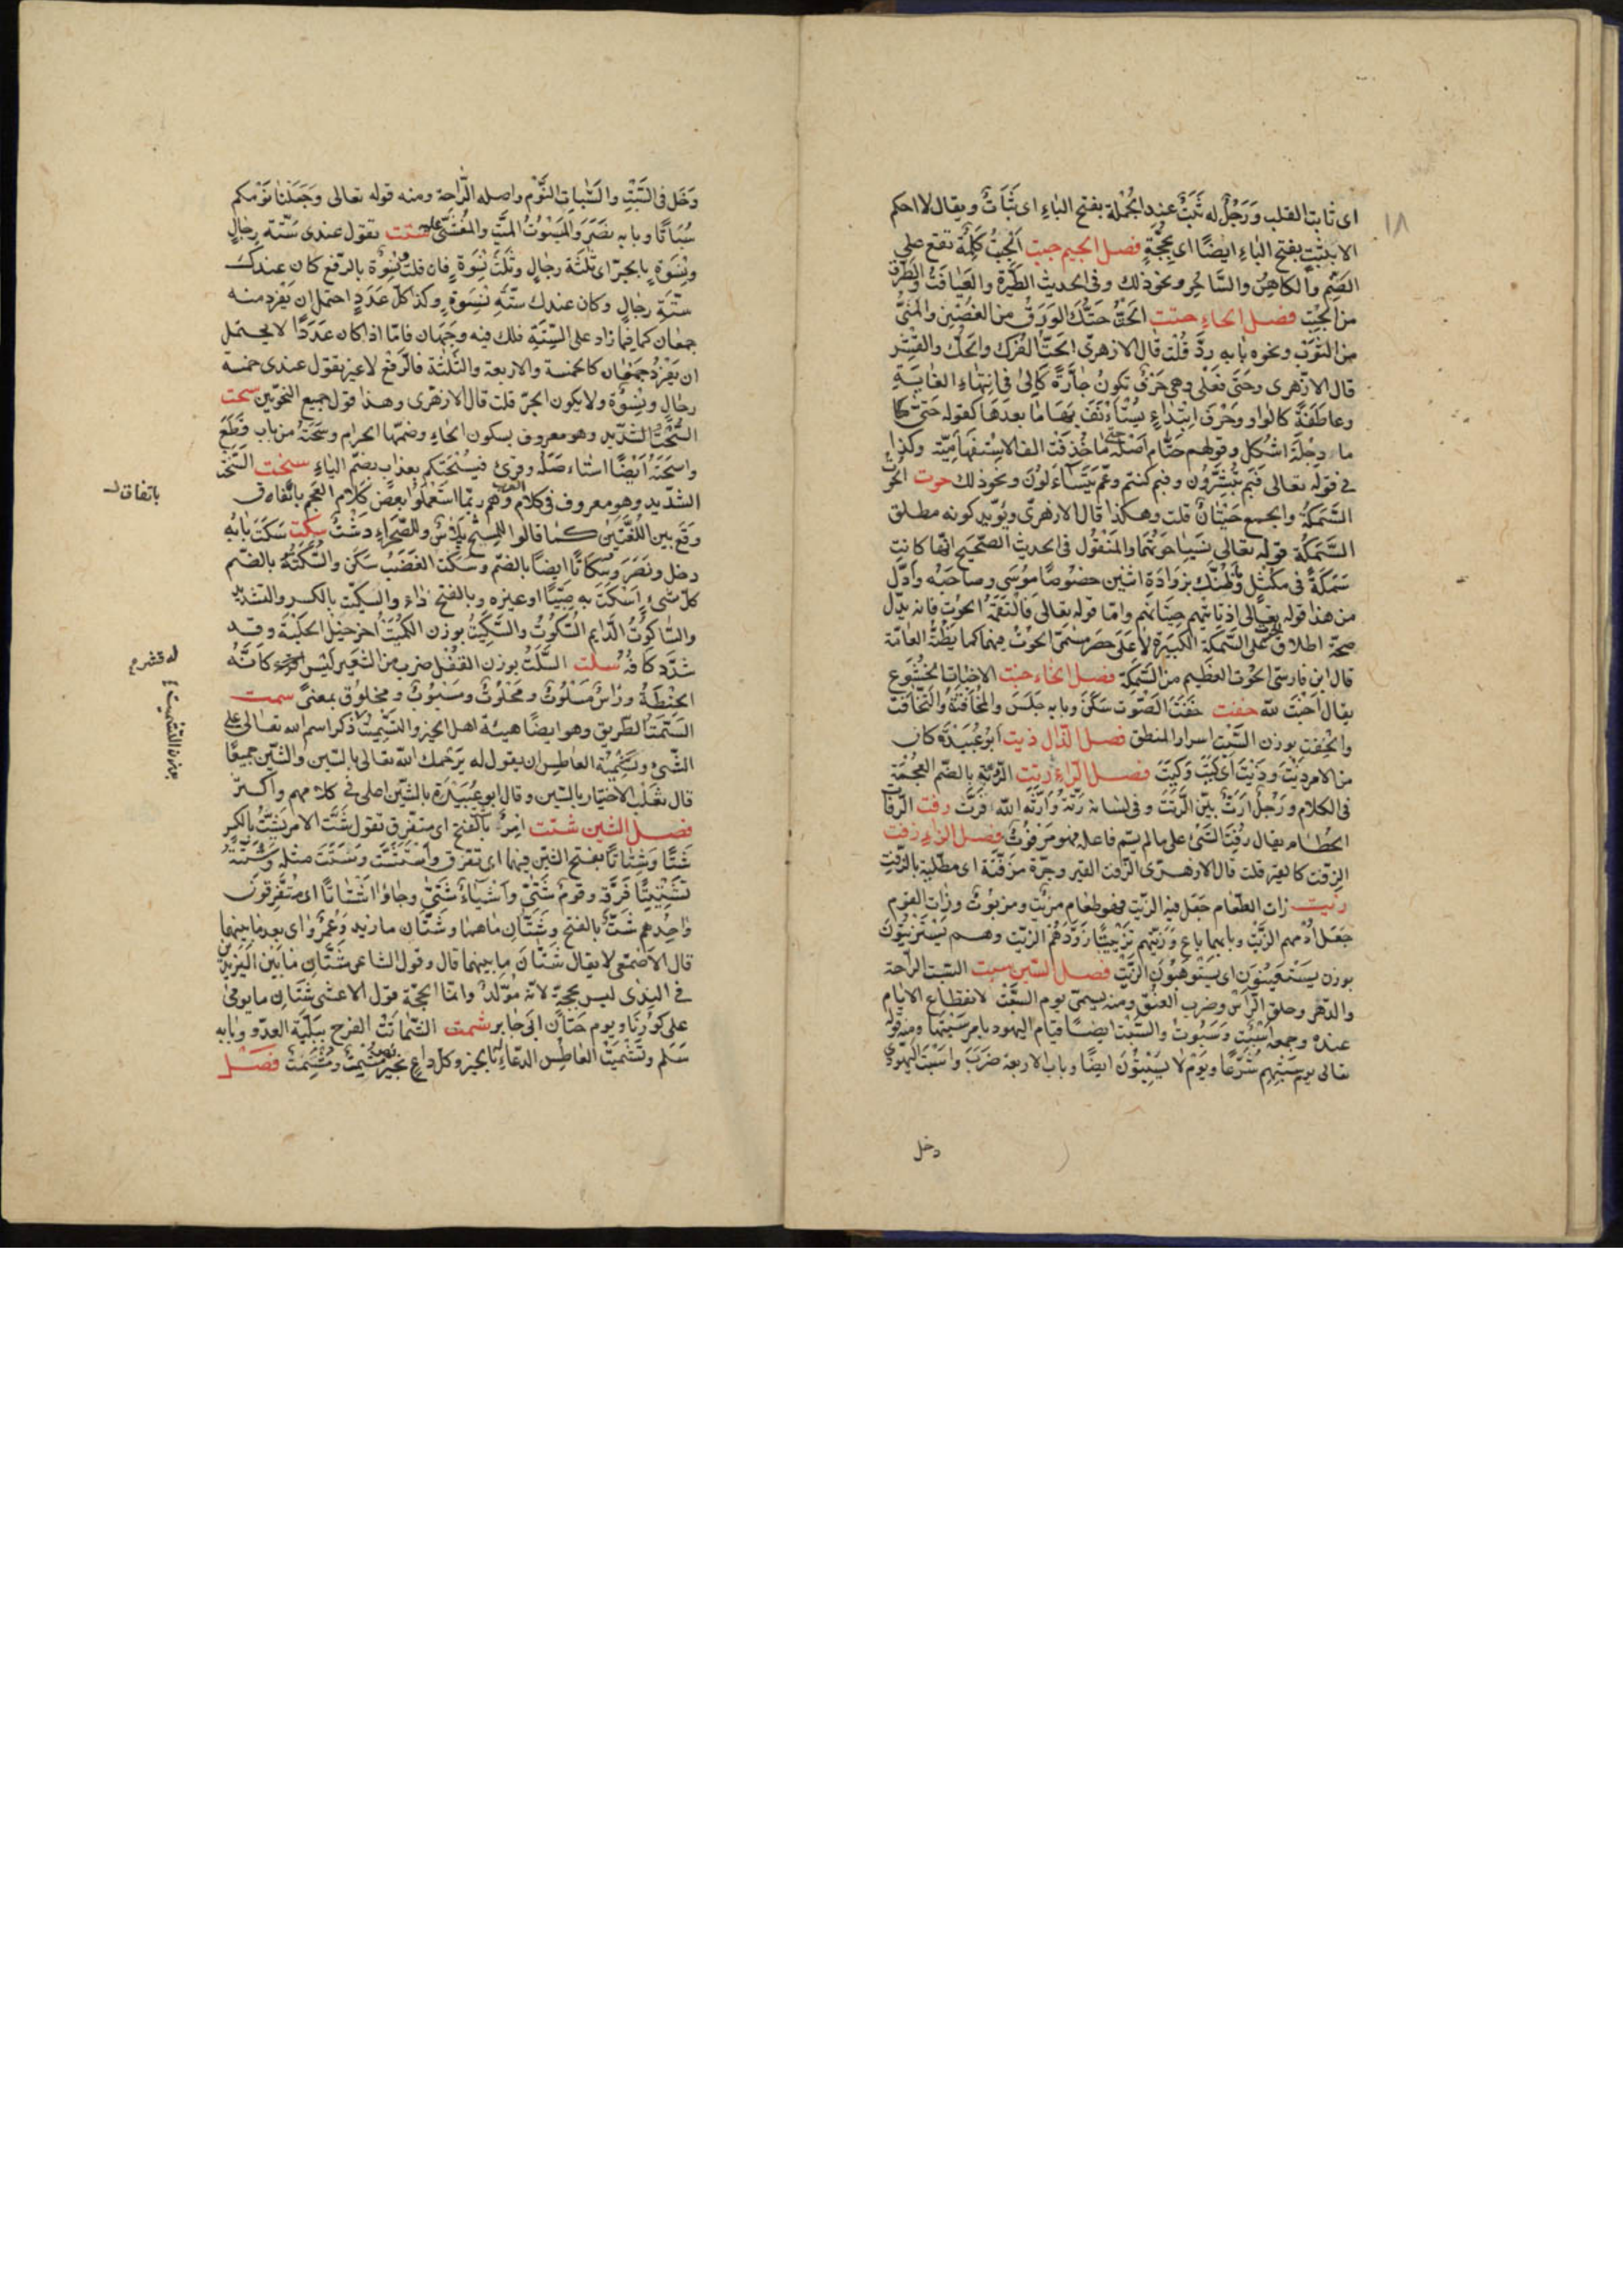 ١٨
اى ثابت القلب وَرَجُلٌ له ثَبَتٌ عند الجُملة بفتح الباءِ اى ثَبَاتٌ ويقال لا احكم
الا بثَبَتٍ بفتح الباءِ ايضًا اى بحجّةٍ فصل الجيم جبت الجِبتُ كَلِمَةٌ تقع على
الصَّنَم والكاهِن والسَّاحِر ونحو ذلك وفى الحديث الطِّيَرة والعِيَافَةُ والطَّرْق
من الجِبْتِ فصل الحاءِ حتت الحَتُّ حَتُّكَ الوَرَقَ من الغُصْنِ والمنىَّ
من الثَّوبْ ونحوه بابه ردَّ قُلْتُ قال الازهرى الحَتُّ الفَرْك والحَكّ والقَشْر
قال الازهرى وحَتَّى فَعْلَى وهى حَرْفٌ تكونُ جارَّةً كَالى فى انتهاءِ الغايَةِ
وعاطَفَةً كالواو وحَرْفَ ابْتِدَاءٍ يُسْتَأْنَفُ بهَا مَا بعدَهَا كقوله حَتّى
ماءُ دِجْلَةَ اَشْكل وقولهم حَتَّام اصْلُه حتى ما حُذِفَتْ الف الاستفهامِيّة وكذا
فى قوله تعالى فَبِمَ تُبَشِّرُون وفيم كنتم وعَمَّ يَتَسَآءَلُونَ ونحو ذلك حوت الحُوتُ
السَّمَكَةُ والجمع حِيْتَانٌ قلت وهكذا قال الازهرىّ ويُؤيّد كونه مطلق
السَّمَكَة قوله تعالى نَسِيَا حُوتَهُمَا والمَنْقُول فى الحديث الصّحِيحِ انّها كانت
سَمَكَةً فى مِكْتَلٍ وظَنُّكَ بزوَادَةِ اثنين خصُوصًا موُسَى وصاحبه واَدَلّ
من هذا قوله تعالى اذ تأتيهم حِيتانهم وامّا قوله تعالى فَالْتَقَمَهُ الحوُتُ فانه يدلّ
صحة اطلاق الحوت على السَّمَكة الكَبِيرَة لا على حصر مسَمَّى الحُوتُ فيها كما يَظُنُّه العامّة
قال ابن فارس الحُوت العَظِيم من السَّمَكة فصل الخاءِ خبت الاخبات الخُشُوع
يقال اَخْبَتَ للهِ خفت خَفَتَ الصَّوْت سَكَنَ وبابه جَلَسَ والمُخَافَتَةُ والتَّخَافُتُ
والخَفْتُ بوزن السَّبْت اسرار المنطق فصل الذال ذيت ابو عُبَيْدَة كان
من الامر ذَيْتَ وَذَيْتَ اى كَيْتَ وَكَيْتَ فصل الراءِ رتت الرُّتَّة بالضّم العُجْمَة
فى الكلام وَرَجُلٌ اَرَتُّ بيّن الرَّتَتِ وفى لسانه رُتَّةٌ وَاَرَتَّه اللّه فَرَتَّ رفت الرُّفَاتُ
الحُطَام يقال رُفِتَ الشَّىْء على ما لم يسّم فاعله فهو مَرْفوُتٌ فصل الزاءِ زفت
الزِفت كالقير قلت قال الازهرى الزفت القير وجرّة مزَفَّتَة اى مطليّة بالزّفت
زيت زات الطّعَام جَعَل فيه الزّيت فهو طعَام مزَيْت ومزيوُتٌ وزات القوم
جعَل اُدْمهم الزَّيْت وبابهما باعَ وَزَيَّتَهم تَزْيِيتًا زَوَّدَهُمْ الزيّت وهم يَسْتَزِيتُونَ
بوزن يَسْتَعِينُونَ اى يَسْتَوْهِبُونَ الزَّيْت فصل السّين سبت السَّبت الرّاحة
والدّهْر وحلق الرّأس وضرب العنق ومنه يسمى يوم السَّبْت لانقطاع الايام
عنده وجمعه اَسْبُتٌ وَسُبوُتٌ والسَّبْت ايضًا قيام اليهود بامر سَبْتها ومنه قوله
تعالى يوم سَبْتِهِم شُرَّعًا ويَوْم لا يَسْبِتُونَ ايضًا وباب الاربعة ضَرَبَ واسْبَتَ اليهودىّ
دخل
دَخَل فى السَّبْتِ والسُّباتُ النَّوْم واصله الرّاحة ومنه قوله تعالى وَجَعَلْنَا نَوْمَكم
سُبَاتًا وبابه نصَرَ وَالمَسْبُوتُ الميّت والمُغْشِىّ عليه ستت تقول عندى سّتة رجالٍ
ونِسْوَةٍ بالجرّ اى ثلثَة رجالٍ وثلَث نِسْوَةٍ فان قلت ونسْوَة بالرّفع كان عندك
ستَّة رجالٍ وكان عندك ستّةِ نِسْوَةٍ وكذا كلّ عَدَدٍ احتمل ان يفرد منه
جمعَان كما فما زاد على السِّتَّةِ فلك فيه وجهَان فامّا اذا كان عَدَدًا لا يحتمل
ان يُفْرَد جَمْعَان كالخمسة والاربعة والثَّلثَة فالرّفع لا غير تقول عندى خمسة
رجالٍ ونِسْوَةٌ ولا يكون الجرّ قلت قال الازهرى وهذا قول جميع النحوّيين سحت
السُّحْتُ الشديد وهو معروف بسكون الحاءِ وضمّها الحرام وسَحَتَهُ من باب قَطَعَ
واسحَتَهُ ايضًا استاءصله وقرئ فَيُسْحِتَكم بعذابٍ بضم الياءِ سخت السَّخْت
الشّديد وهو معروف فى كلام العرب وهم ربّما استعملوا بعض كلام العَجم باتّفاق
وَقَعَ بين اللُّغَتَيْنِ كما قالوا للمِسْحِ بِلاسٌ وللصّحراءِ دَشْتٌ سكت سَكَتَ بابُه
دخل ونصَرَ وسُكَاتًا ايضًا بالضّم وسكت الغَضَبُ سَكَن والسُّكْتَةُ بالضّم
كلّ شىءٍ اَسْكَتَّ به صَبيًّا او غيره وبالفتح داءٌ والسِكِّيت بالكسر والتشديد
والسَّاكُوتُ الدايم السُّكُوتُ والسُّكَيْتُ بوزن الكُمَيْت آخر خَيْل الحَلْبَة وقد
شدّد كافهُ سلت السُّلْتُ بوزن القُفْل ضرب من الشّعِير لَيْسَ له قشر كانّهُ
الحِنْطَةُ ورَأسٌ مَسْلُوتٌ ومَحْلُوتٌ ومَسْبُوتٌ ومحلوُق بمعنىً سمت
السَّمْتُ الطريق وهو ايضًا هيئة اهل الخير والتَّسْمِيتُ ذكر اسم الله تعالى على
الشّىءْ وتسْمِيةُ العاطِس ان يقول له يرْحمك اللّه تعالى بالسّين والشين جميعًا
قال ثعْلَب الاختيار بالسّين وقال ابو عُبَيْدَة بالشّين اعلى فى كلامهم واكثر
فصل الشين شتت اَمْرٌ شَتٌّ بالفتح اى متفرّق تقول شَتَّ الامر يَشِتُّ بالكسر
شَتًّا وَشَتَاتًا بفتح الشّين فيهما اى تفرّق واسْتَشَتَّ وتَشَتَّتَ مثله وشَتَّتَهُ
تَشْتِيتًا فَرَّقه وقومٌ شَتَّى وَاَشْيَاءُ شَتَّى وجاؤا اشتَاتًا اى مُتَفَرّقُونَ
واحدهم شَتٌّ بالفتح وشَتَّانَ ما همَا وشَتَّان ما زيد وَعَمْرٌو اى بعد ما بينهما
قال الاَصْمَعى لا يقال شَتَّانَ ما بينهما قال وقول الشاعر شَتَّانَ مَا بَيْنَ اليزيدين
فى النّدَى ليس بحجةٍ لانه مُوَلّدٌ وانمّا الحجّة قول الاعشى شتّان ما يومى
على كورها ويوم حيّان اخى جابر شمت الشّمَاتَةُ الفرح ببَلِيَّة العدوّ وبابه
سَلِم وتَشْمِيتُ العاطِس الدّعاءُ له بالخير وكلّ داعٍ بخيرٍ فهو مُسَمِّتٌ ومُشَمِّتٌ فصل
باتفاق
له قشر م